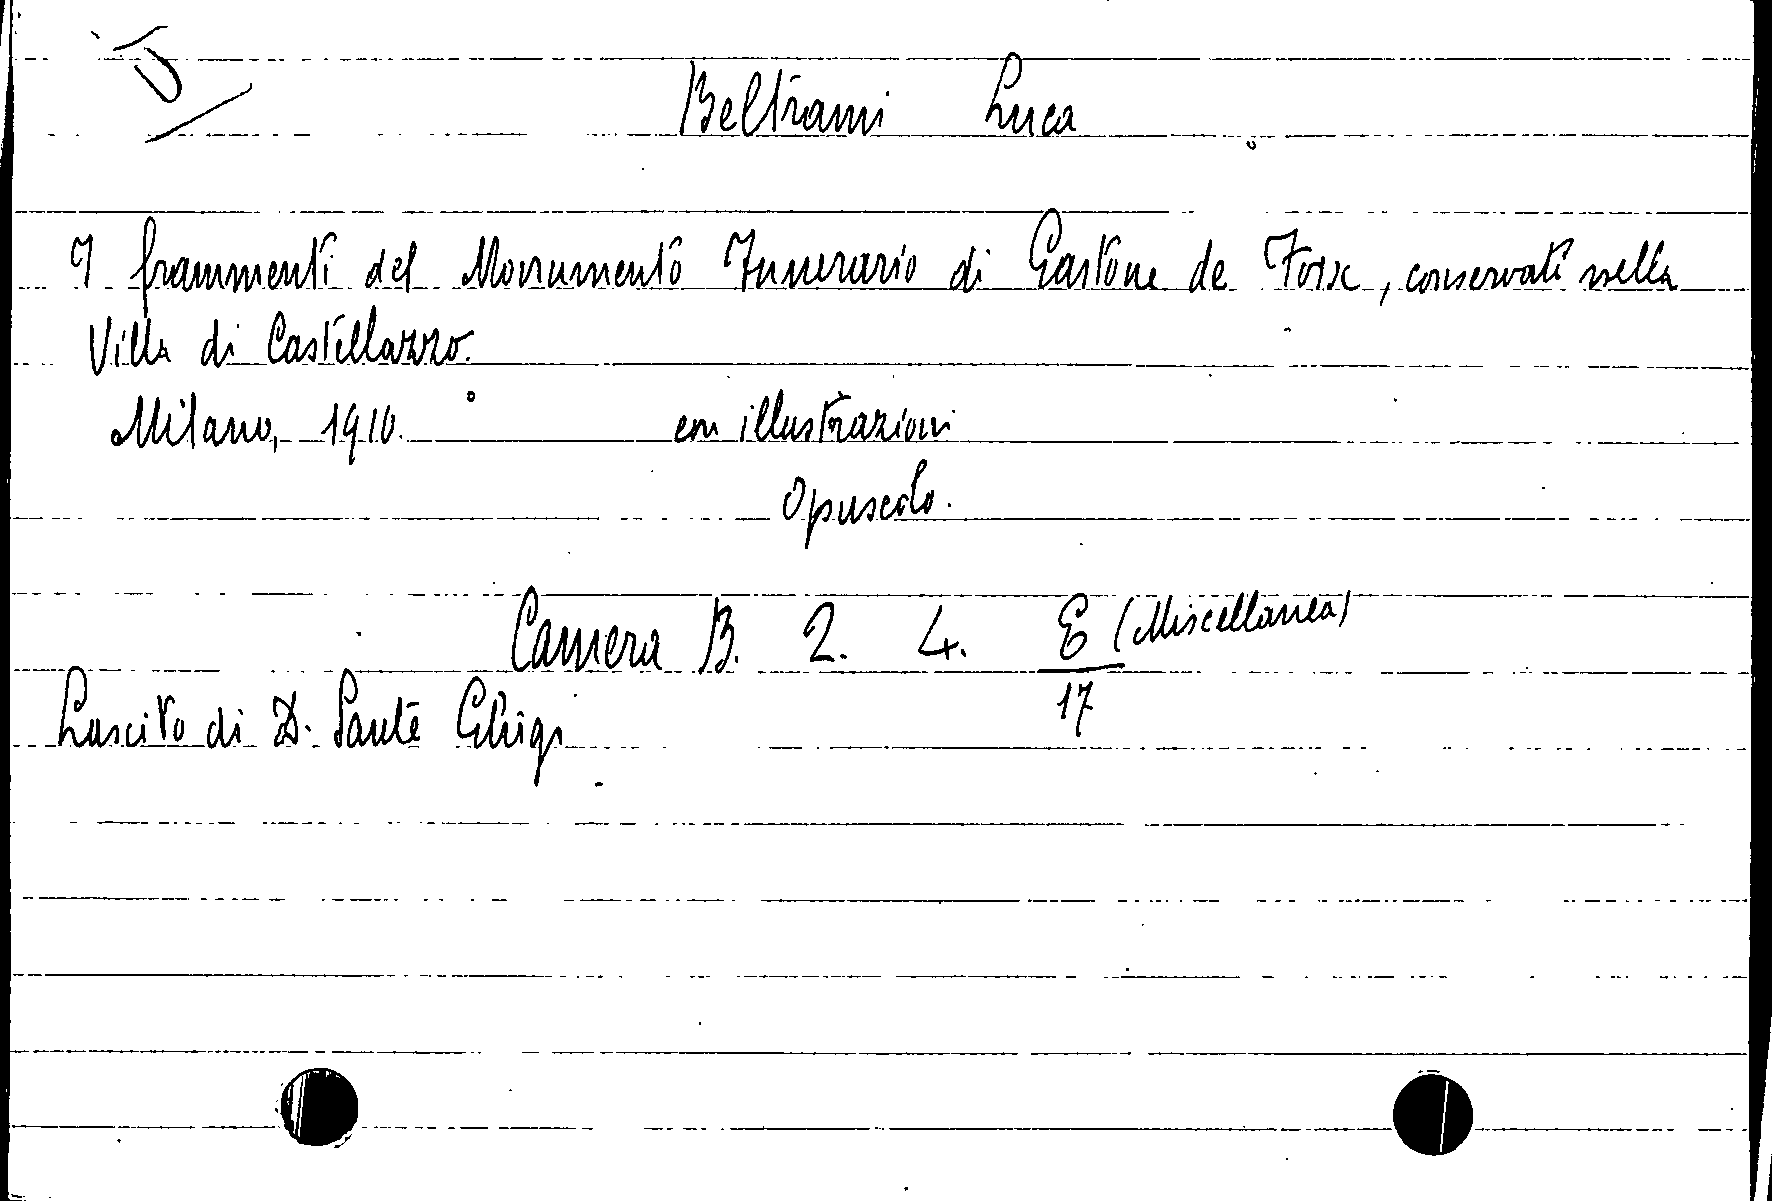 Beltrami Luca
I frammenti del Monumento Funerario di Gastone de Foix, conservati nella
Villa di Castellazzo.
Milano, 1910. con illustrazioni
Opuscolo.
Camera B. 2. 4. E (Miscellanea)
17
Lascito di D. Sante Ghigi